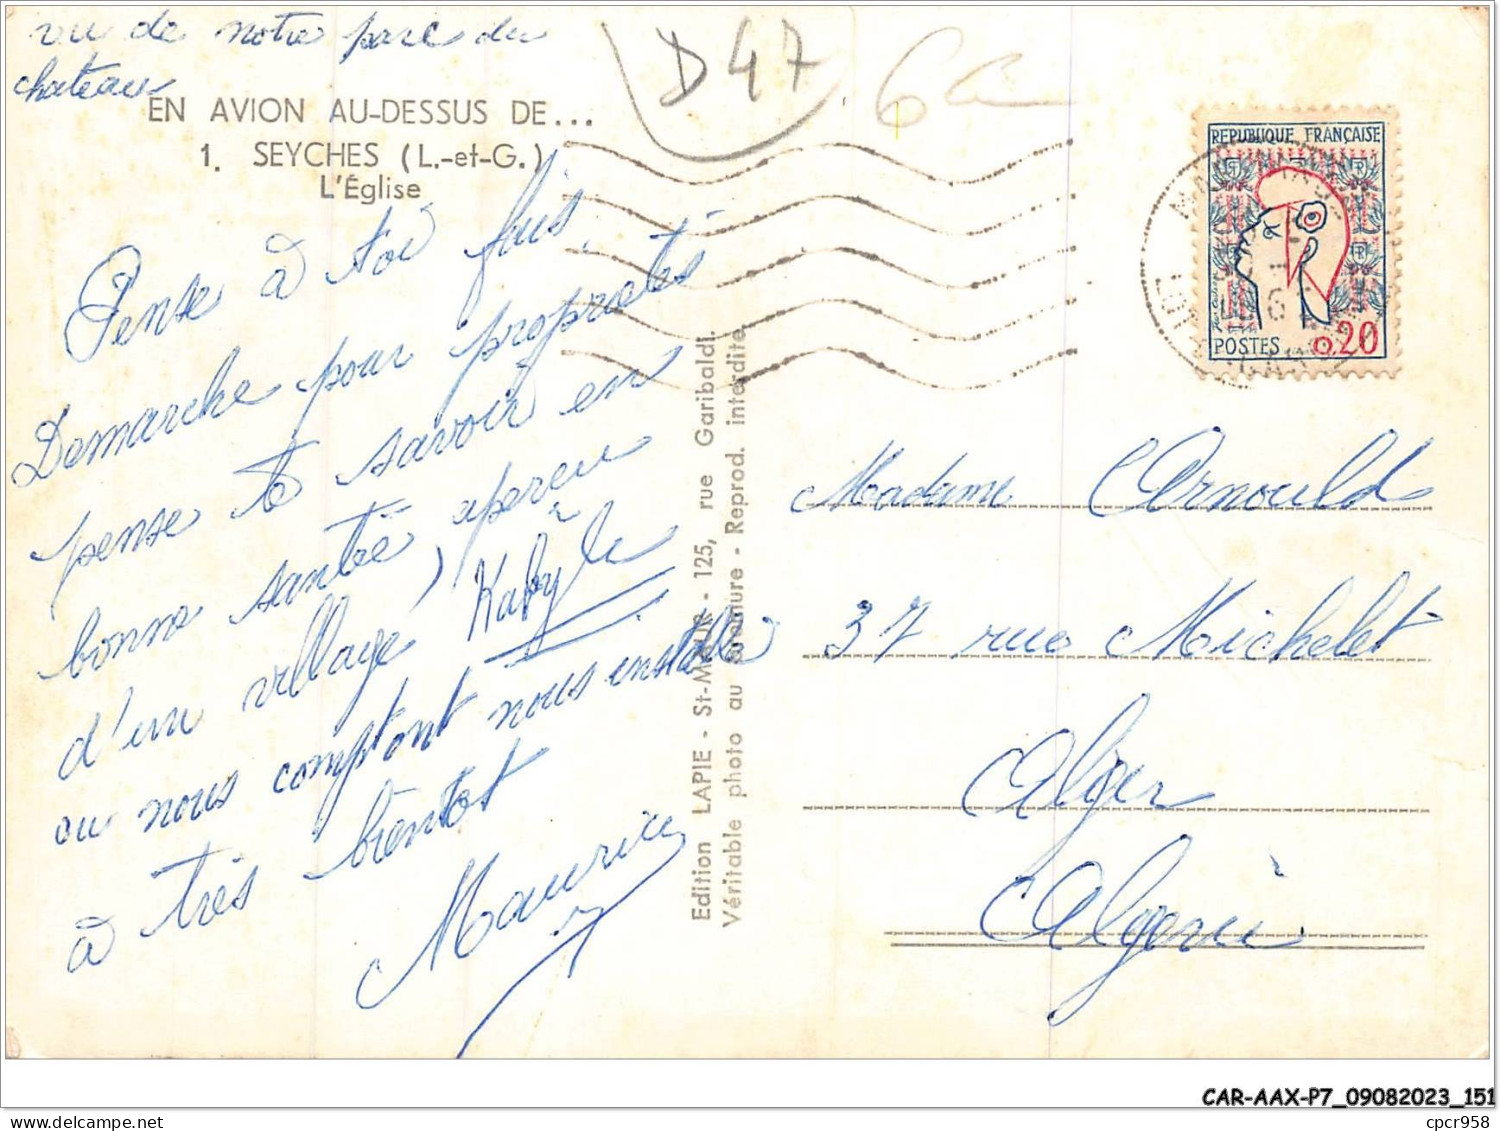 vu de notre parc du
chateau
D47
EN AVION AU-DESSUS DE...
1. SEYCHES (L.-et-G.)
L'Église
Pense à toi fais
Demarche pour propriétés
pense te savoir en
bonne santée, aperçu
d'un village Kabyle
ou nous comptont nous installe
à très bientot
Maurice
Edition LAPIE - St-MAUR - 125, rue Garibaldi.
Véritable photo au bromure - Reprod. interdite.
REPUBLIQUE FRANÇAISE
POSTES 0,20
Madame Arnould
37 rue Michelet
Alger
Algerie
CAR-AAX-P7_09082023_151
cpcr958